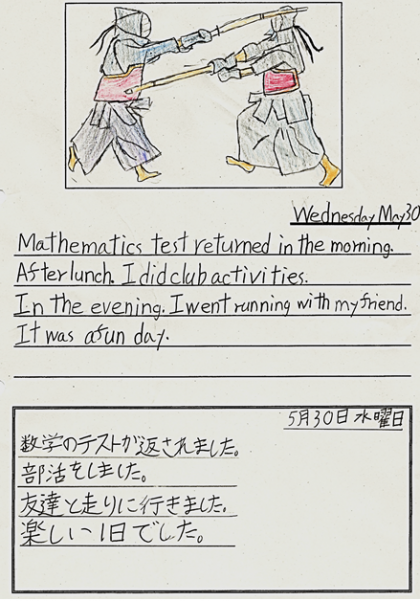 Wednesday May 30
Mathematics test returned in the morning.
After lunch. I did club activities.
In the evening. I went running with my friend.
It was a fun day.
5月30日 水曜日
数学のテストが返されました。
部活をしました。
友達と走りに行きました。
楽しい1日でした。